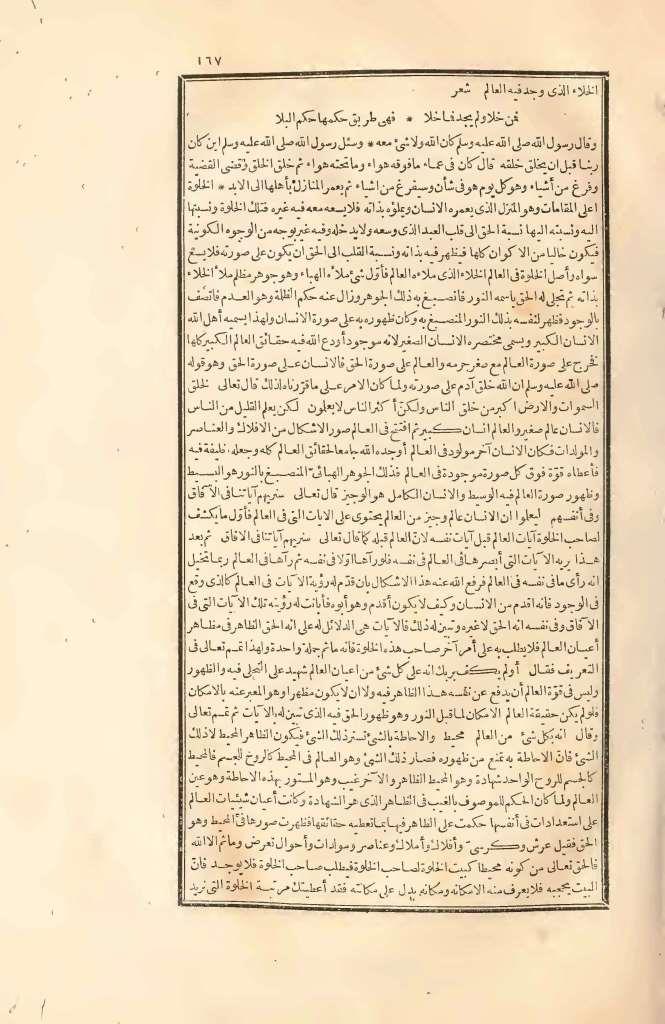 ١٦٧
الخلاء الذى وجد فيه العالم شعر
فمن خلا ولم يجد فما خلا * فهى طريق حكمها حكم البلا
وقال رسول الله صلى الله عليه وسلم كان الله ولا شئ معه * وسئل رسول الله صلى الله عليه وسلم اين كان
ربنا قبل ان يخلق خلقه قال كان فى عماء مافوقه هواء وما تحته هواء ثم خلق الخلق وقضى القضية
وفرغ من أشياء وهو كل يوم هو فى شأن وسيفرغ من اشياء ثم يعمر المنازل بأهلها الى الابد * الخلوة
اعلى المقامات وهو المنزل الذى يعمره الانسان ويملؤه بذاته فلا يسعه معه فيه غيره فتلك الخلوة ونسبتها
اليه ونسبته اليها نسبة الحق الى قلب العبد الذى وسعه ولا يدخله وفيه غير بوجه من الوجوه الكونية
فيكون خاليا من الاكوان كلها فيظهر فيه بذاته ونسبة القلب الى الحق أن يكون على صورته فلا يسع
سواه وأصل الخلوة فى العالم الخلاء الذى ملأه العالم فأول شئ ملأه الهباء وهو جوهر مظلم ملأ الخلاء
بذاته ثم تجلى له الحق باسمه النور فانصبغ به ذلك الجوهر وزال عنه حكم الظلمة وهو العدم فاتصف
بالوجود فظهر لنفسه بذلك النور المنصبغ به وكان ظهوره به على صورة الانسان ولهذا يسميه أهل الله
الانسان الكبير ويسمى مختصره الانسان الصغير لانه موجود أودع الله فيه حقائق العالم الكبير كلها
فخرج على صورة العالم مع صغر جرمه والعالم على صورة الحق فالانسان على صورة الحق وهو قوله
صلى الله عليه وسلم ان الله خلق آدم على صورته ولما كان الامر على ما قررناه لذلك قال تعالى لخلق
السموات والارض اكبر من خلق الناس ولكن أكثر الناس لا يعلمون لكن يعلم القليل من الناس
فالانسان عالم صغير والعالم انسان كبير ثم افتتح فى العالم صور الاشكال من الافلاك والعناصر
والمولدات فكان الانسان آخر مولود فى العالم أوجده الله جامعا لحقائق العالم كله وجعله خليفة فيه
فأعطاه قوّة فوق كل صورة موجودة فى العالم فذلك الجوهر الهبائىّ المنصبغ بالنور هو البسيط
وظهور صورة العالم فيه الوسيط والانسان الكامل هو الوجيز قال تعالى سنريهم آياتنا فى الآفاق
وفى أنفسهم ليعلموا ان الانسان عالم وجيز من العالم يحتوى على الآيات التى فى العالم فأول ما يكشف
لصاحب الخلوة آيات العالم قبل آيات نفسه لان العالم قبله كما قال تعالى سنريهم آياتنا فى الآفاق ثم بعد
هذا يريه الآيات التى أبصرها فى العالم فى نفسه فلو رآها اوّلا فى نفسه ثم رآها فى العالم ربما تخيل
انه رأى ما فى نفسه فى العالم فرفع الله عنه هذا الاشكال بان قدّم له رؤية الآيات فى العالم كالذى وقع
فى الوجود فانه اقدم من الانسان وكيف لا يكون أقدم وهو أبوه فأبانت له رؤية تلك الآيات التى فى
الآفاق وفى نفسه انه الحق لا غيره وتبين له ذلك فالآيات هى الدلائل له على انه الحق الظاهر فى مظاهر
أعيان العالم فلا يطلب به على أمر آخر صاحب هذه الخلوة فانه ما ثم جملة واحدة ولهذا تمم تعالى فى
التعريف فقال أولم يكف بربك انه على كل شئ من اعيان العالم شهيد على التجلى فيه والظهور
وليس فى قوّة العالم أن يدفع عن نفسه هذا الظاهر فيه ولا ان لا يكون مظهرا وهو المعبر عنه بالامكان
فلو لم يكن حقيقة العالم الامكان لما قبل النور وهو ظهور الحق فيه الذى تبين له بالآيات ثم تمم تعالى
وقال انه بكل شئ من العالم محيط والاحاطة بالشئ تستر ذلك الشئ فيكون الظاهر المحيط لا ذلك
الشئ فان الاحاطة به تمنع من ظهوره فصار ذلك الشئ وهو العالم فى المحيط كالروح للجسم فالمحيط
كالجسم للروح الواحد شهادة وهو المحيط الظاهر والآخر غيب وهو المستور بهذه الاحاطة وهو عين
العالم ولما كان الحكم للموصوف بالغيب فى الظاهر الذى هو الشهادة وكانت أعيان شيئيات العالم
على استعدادات فى أنفسها حكمت على الظاهر فيها بما تعطيه حقائقها فظهرت صورها فى المحيط وهو
الحق فقيل عرش وكرسىّ وأفلاك وأملاك وعناصر ومولدات وأحوال تعرض وما ثم الا الله
فالحق تعالى من كونه محيطا كبيت الخلوة لصاحب الخلوة فيطلب صاحب الخلوة فلا يوجد فانّ
البيت يحجبه فلا يعرف منه الامكانه ومكانه يدل على مكانته فقد أعطيتك مرتبة الخلوة التى نريد